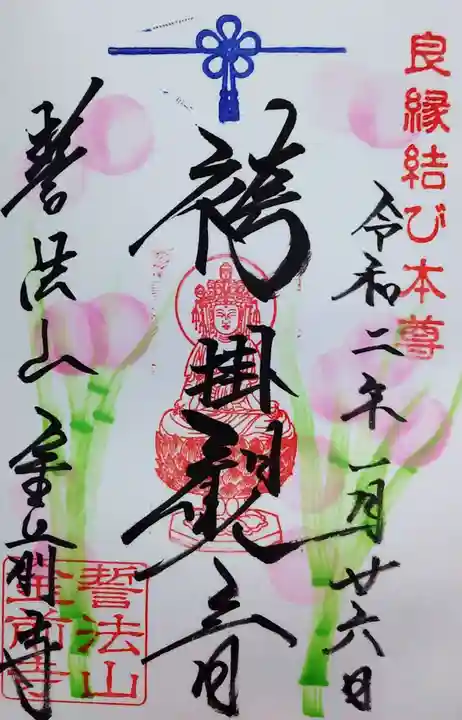 良縁結び本尊
令和二年一月廿六日
袴掛観音
誓法山 金前寺
誓法山
金前寺